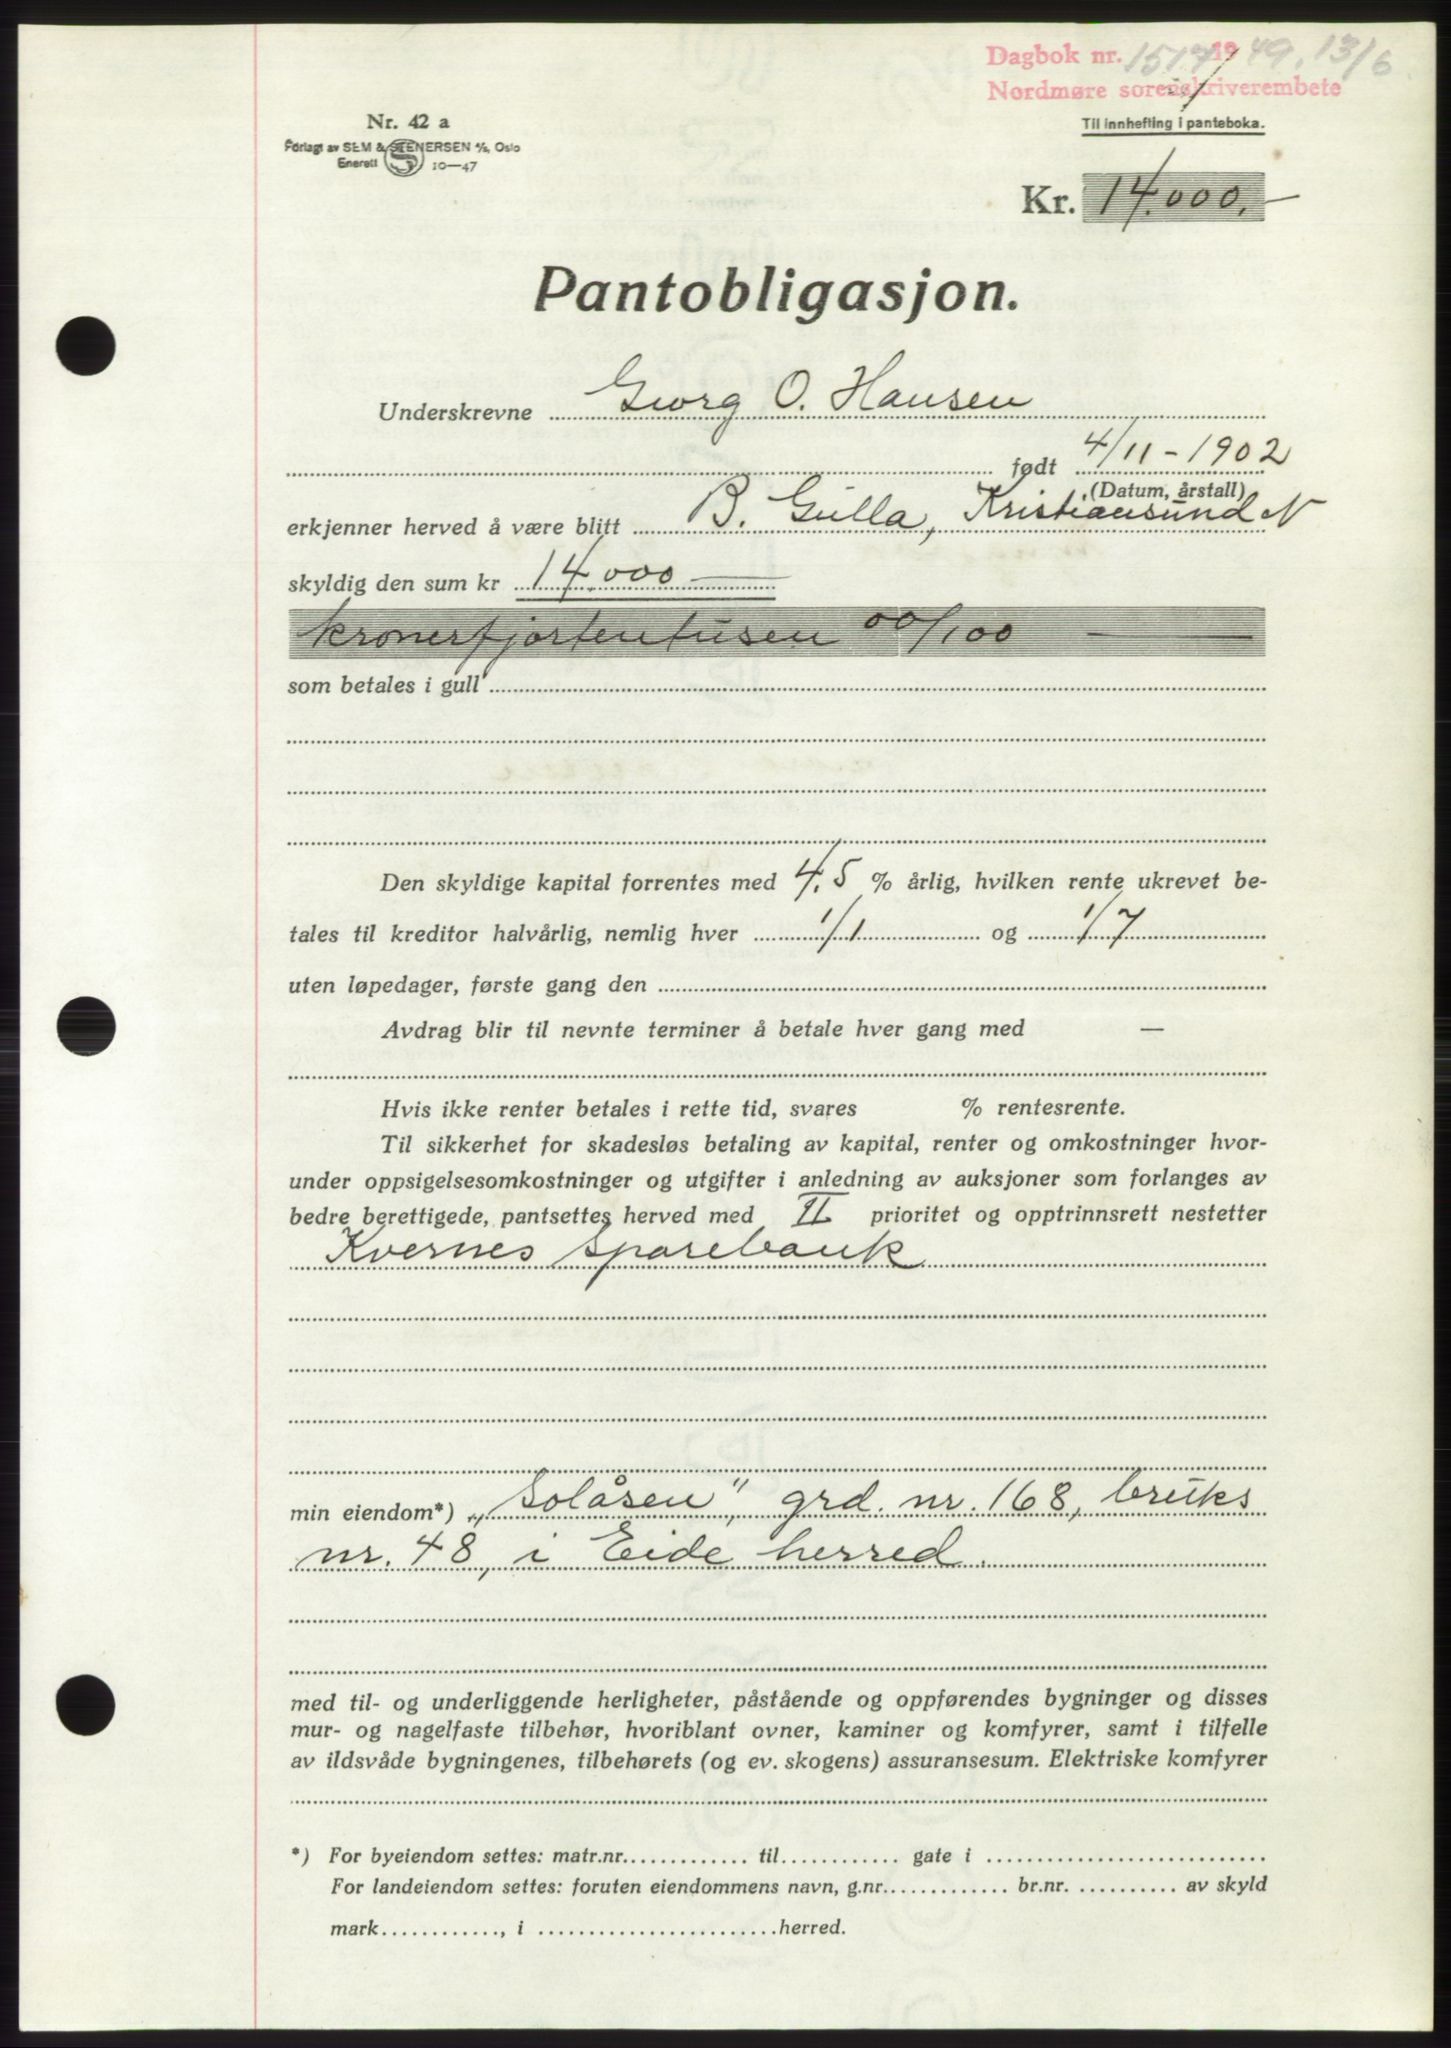 Dagbok nr. 1517 1949, 13/6
Nordmøre sorenskriverembete
Til innhefting i panteboka.
Nr. 42 a
Forlagt av SEM & STENERSEN A/S, Oslo
Enerett 10—47
Kr. 14.000.—
Pantobligasjon.
Underskrevne Georg O. Hansen
født 4/11 - 1902
(Datum, årstall)
erkjenner herved å være blitt B. Gulla, Kristiansund N
skyldig den sum kr 14.000 —
kronerfjortentusen 00/100 —
som betales i gull
Den skyldige kapital forrentes med 4,5 % årlig, hvilken rente ukrevet be-
tales til kreditor halvårlig, nemlig hver 1/1 og 1/7
uten løpedager, første gang den
Avdrag blir til nevnte terminer å betale hver gang med —
Hvis ikke renter betales i rette tid, svares % rentesrente.
Til sikkerhet for skadesløs betaling av kapital, renter og omkostninger hvor-
under oppsigelsesomkostninger og utgifter i anledning av auksjoner som forlanges av
bedre berettigede, pantsettes herved med II prioritet og opptrinnsrett nestetter
Kvernes Sparebank
min eiendom*) „Solåsen", grd. nr. 168, bruks
nr. 48, i Eide herred.
med til- og underliggende herligheter, påstående og oppførendes bygninger og disses
mur- og nagelfaste tilbehør, hvoriblant ovner, kaminer og komfyrer, samt i tilfelle
av ildsvåde bygningenes, tilbehørets (og ev. skogens) assuransesum. Elektriske komfyrer
*) For byeiendom settes: matr.nr. til gate i
For landeiendom settes: foruten eiendommens navn, g.nr. br.nr. av skyld
mark , i herred.